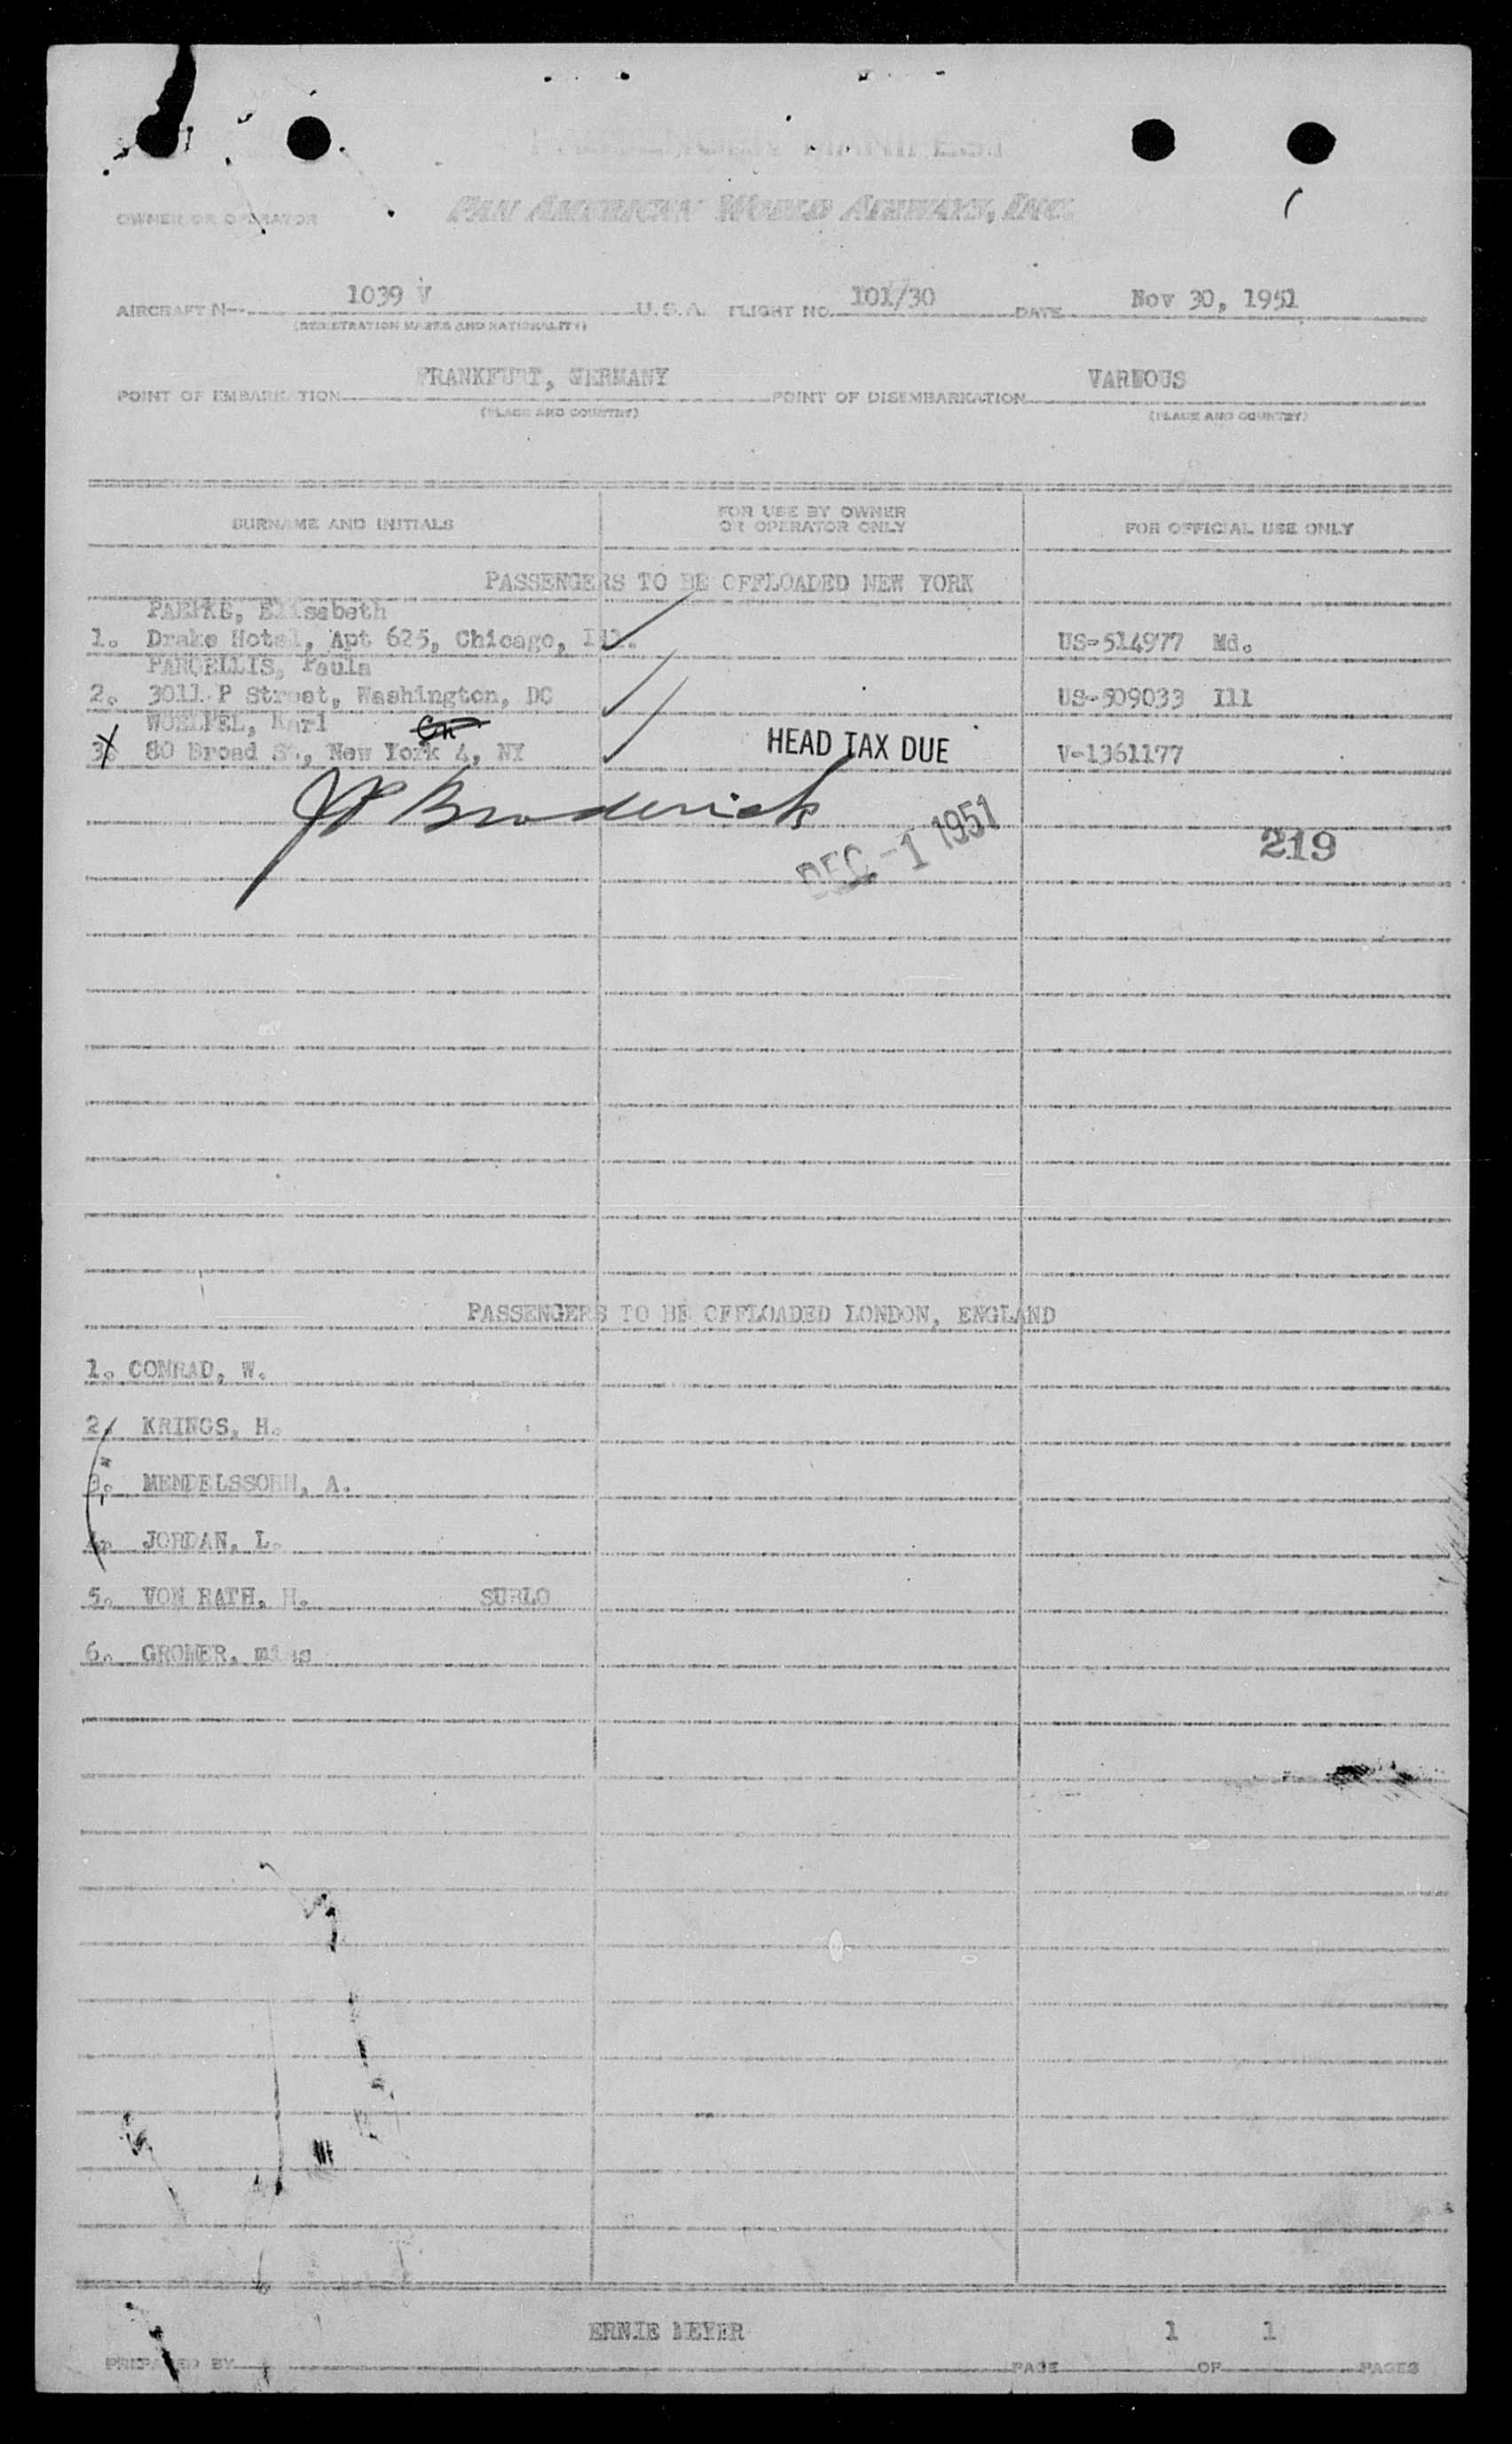 PASSENGER MANIFEST
OWNER OR OPERATOR PAN AMERICAN WORLD AIRWAYS, INC.
AIRCRAFT N- 1039 V U.S.A. FLIGHT NO. 101/30 DATE Nov 30, 1951
(REGISTRATION MARKS AND NATIONALITY)
POINT OF EMBARKATION FRANKFURT, GERMANY POINT OF DISEMBARKATION VARIOUS
(PLACE AND COUNTRY) (PLACE AND COUNTRY)
SURNAME AND INITIALS FOR USE BY OWNER OR OPERATOR ONLY FOR OFFICIAL USE ONLY
PASSENGERS TO BE OFFLOADED NEW YORK
PAEPKE, Elisabeth
1. Drake Hotel, Apt 625, Chicago, Ill. US-514977 Md.
Paula
2. 3011 P Street, Washington, DC US-509033 Ill
Karl
3. 80 Broad St, New York 4, NY HEAD TAX DUE V-1361177
JP Broderick
DEC -1 1951 219
PASSENGERS TO BE OFFLOADED LONDON, ENGLAND
1. CONRAD, W.
2. KRINGS, H.
3. MENDELSSOHN, A.
4. JORDAN, L.
5. VON RATH, H. SUBLO
6. GROMER, miss
ERNIE MEYER 1 1
PREPARED BY PAGE OF PAGES